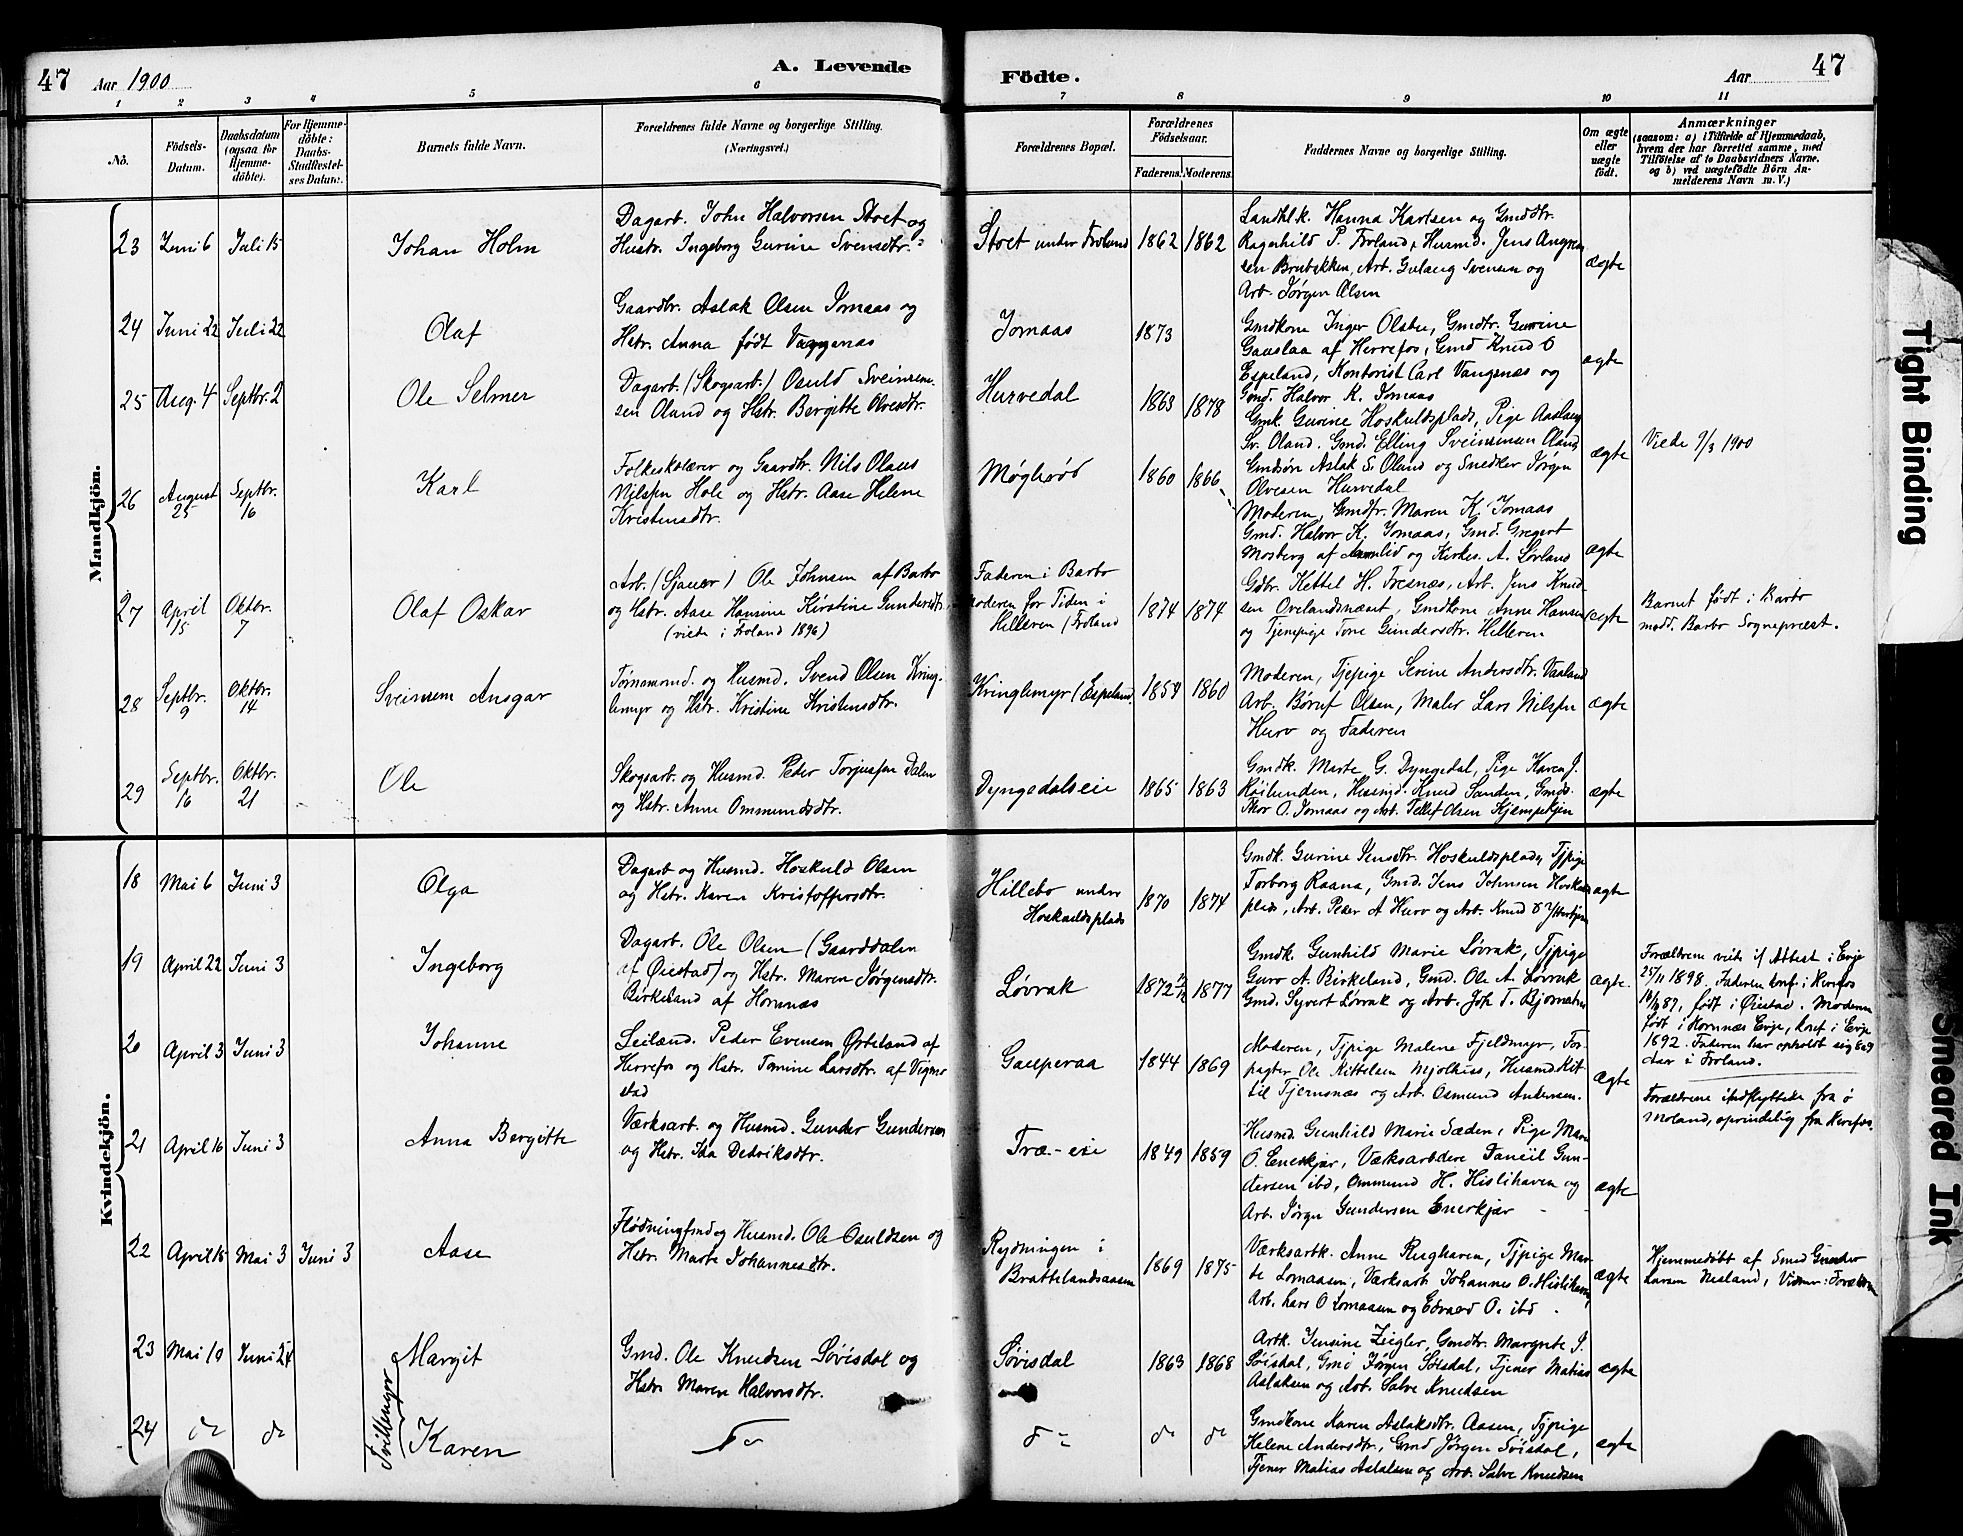 47 Aar 1900 A. Levende
Födte. Aar 47
1 2 3 4 5 6
7 8 9 10 11
No.
Födsels-Datum.
Daabsdatum (ogsaa for Hjemme-döbte).
For Hjemme-döbte: Daabs-Stadfæstel-ses Datum.
Barnets fulde Navn.
Forældrenes fulde Navne og borgerlige Stilling. (Næringsvei.)
Forældrenes Bopæl.
Forældrenes Födselsaar.
Faderens. Moderens.
Faddernes Navne og borgerlige Stilling.
Om ægte eller uægte födt.
Anmærkninger
(saasom: a) i Tilfælde af Hjemmedaab,
hvem der har forrettet samme, med
Tilföielse af to Daabsvidners Navne.
og b) ved uægtefödte Börn An-
melderens Navn m. V.)
Mandkjön.
23 Juni 6 Juli 15 Johan Holm
Dagarb. John Halvorsen Stoet og
Hustr. Ingeborg Gurine Svensdtr.
Stoet under Froland 1862 1862
Landhlk. Hanna Karlsen og Gmddtr.
Ragnhild P. Froland, Husmd. Jens
Brubakken, Arb. Gulaug Svensen og
Arb. Jørgen Olsen
ægte
24 Juni 22 Juli 22 Olaf
Gaardbr. Aslak Olsen Jomaas og
Hstr. Anna født Vangenæs
Jomaas 1873
Gmdkone Inger Olsbu, Gmdtr. Gurine
Gauslaa af Herrefos, Gmd Knud O
Espeland, Kontorist Carl Vangenæs og
Gmd. Halvor K. Jomaas
ægte
25 Aug. 4 Septbr. 2 Ole Selmer
Dagarb. (Skogsarb.) Osuld Sveinsen-
sen Oland og Hstr. Bergitte Olvesdtr.
Hurvedal 1863 1878
Gmk. Gurine Hoskuldsplads, Pige Aaslaug
Sv. Oland. Gmd. Elling Sveinsensen Oland,
Gmdsøn Aslak S. Oland og Snedker Jørgen
Olvesen Hurvedal
ægte
Viede 9/3 1900
26 August 25 Septbr. 16 Karl
Folkeskolærer og Gaardbr. Nils Olaus
Nilssen Hole og Hstr. Aase Helene
Kristensdtr.
Møglerød 1860 1866
Moderen, Gmdtr. Maren K. Jomaas
Gmd. Halvor K. Jomaas, Gmd. Gregert
Mosberg af og Kirkes. A. Løvland
ægte
27 April 15 Oktbr. 7 Olaf Oskar
Arb. (Sjauer) Ole Johnsen af Barbo
og Hstr. Aase Hansine Kirstine Gundersdtr.
(viede i Froland 1896)
Faderen i Barbo
Moderen for Tiden i
Helleren (Froland 1874 1874
Gdbr. Kettel H. Fresnæs, Arb. Jens Knud-
sen Ovelandsnæset, Gmdkone Anne Hansen
og Tjenepige Tone Gundersdtr. Helleren
ægte
Barnet født i Barbo
medd. Barbo Sognepræst.
28 Septbr. 9 Oktbr. 14 Sveinsem Ansgar
Tørnemand. og Husmd. Svend Olsen Kring-
lemyr og Hstr. Kristine Kristensdtr.
Kringlemyr (Espeland. 1854 1860
Moderen, Tjepige Serine Andersdtr. Vaaland
Arb. Børuf Olsen, Maler Lars Nilssen
Hurv og Faderen
ægte
29 Septbr. 16 Oktbr. 21 Ole
Skogsarb. og Husmd. Peder Torjussen Dalen
og Hstr. Anne Ommundsdtr.
Dyngedalseie 1865 1863
Gmdk. Marte G. Dyngedal, Pige Karen J.
Knud Sanden, Gmds.
Thor O. Jomaas og Arb. Tellef Olsen Kjempekjen
ægte
Kvindekjön.
18 Mai 6 Juni 3 Olga
Dagarb og Husmd. Hoskuld Olsen
og Hstr. Karen Kristoffersdtr.
Hillebo under
Hoskuldsplads 1870 1874
Gmdk. Gurine Jensdtr. Hoskuldsplads, Tjpige
Torborg Raana, Gmd. Jens Johnsen Hoskuld-
plads, Arb. Peder A Hurv og Arb. Knud O Ytterbøen
ægte
19 April 22 Juni 3 Ingeborg
Dagarb. Ole Olsen (Gaarddalen
af Øiestad) og Hstr. Maren Jørgensdtr.
Birkeland af Hornnæs
Løvrak 1872 1877
Gmdk. Gunhild Marie Løvrak, Tjpige
Guro A. Birkeland, Gmd. Ole A. Løvrak
Gmd. Syvert Løvrak og Arb. Joh T. Bjornetun
ægte.
Forældrene viede if Attest i Evje
25/11 1898. Faderen konf. i Herefos
87, født i Øiestad. Moderen
født i Hornnæs Evje, konf i Evje
1892. Faderen har opholdt sig
Aar i Froland.
20 April 3 Juni 3 Johanne
Leilænd. Peder Evensen Ørteland af
Herrefos og Hstr. Tomine Larsdtr. af Vegus-
dad
Gauperaa 1844 1869
Moderen, Tjpige Malene Fjeldmyr, For-
pagter Ole Kittelsen Mjølhus, Husmd. Kit-
til Tjernsnæs og Arb. Osmund Andersen.
ægte
Forældrene indflyttede fra ø
Moland, oprindelig fra Herefos.
21 April 16 Juni 3 Anna Bergitte
Værksarb. og Husmd. Gunder Gundersen
og Hstr. Ida Dedviksdtr.
Træ-eie 1849 1859
Husmd. Gunhild Marie Sæden, Pige Mari
O. Enerkjær, Værksarbdere Taneiil Gun-
dersen ibd, Ommund H. Hislihaven og
Arb. Jørgen Gundersen Enerkjær
ægte
22 April 15 Mai 3 Juni 3 Aase
Flødningsmd og Husmd. Ole Osuldsen og
Hstr. Marte Johannesdtr.
Rydningen i
Brattelandsaasen 1869 1875
Værksarbk. Anne Rughaven, Tjpige Mar-
te Lomaasen, Værksarb Johannes O. Hislihaven,
Arb. Lars O Lomaasen og Edvard O. ibd
ægte
Hjemmedøbt af Smed Gunder
Larsen Nesland, Vidner: Foræld
23 Mai 19 Juni 24 Margit
Gmd. Ole Knudsen Søvisdal og
Hstr. Maren Halvorsdtr.
Søvisdal 1863 1868
Arbk. Jensine Zeigler, Gmdtr. Margrete J.
Søisdal, Gmd Jørgen Søisdal, Tjener Matias
Aslaksen og Arb. Salve Knudsen
ægte
Tvillinger
24 do do Karen do do do do
Gmdkone Karen Aslaksdtr. Aasen, Tjpige
Helene Andersdtr., Gmd Jørgen Søisdal,
Tjener Matias Aslaksen og Arb. Salve Knudsen
ægte
Tight Binding
Smeared Ink